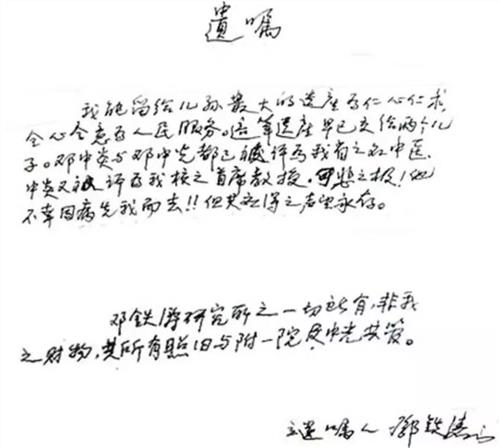 遗嘱
我能留给儿孙最大的遗产为仁心仁术,
全心全意为人民服务。这笔遗产早已交给两个儿
子。邓中炎与邓中光都已被评为我省之名中医,
中炎又被评为我校之首席教授,可悲之极!他
不幸因病先我而去!!但其应得之声望永存。
邓铁涛研究所之一切所有,非我
之财物,其所有照旧与附一院及中光共管。
立遗嘱人 邓铁涛